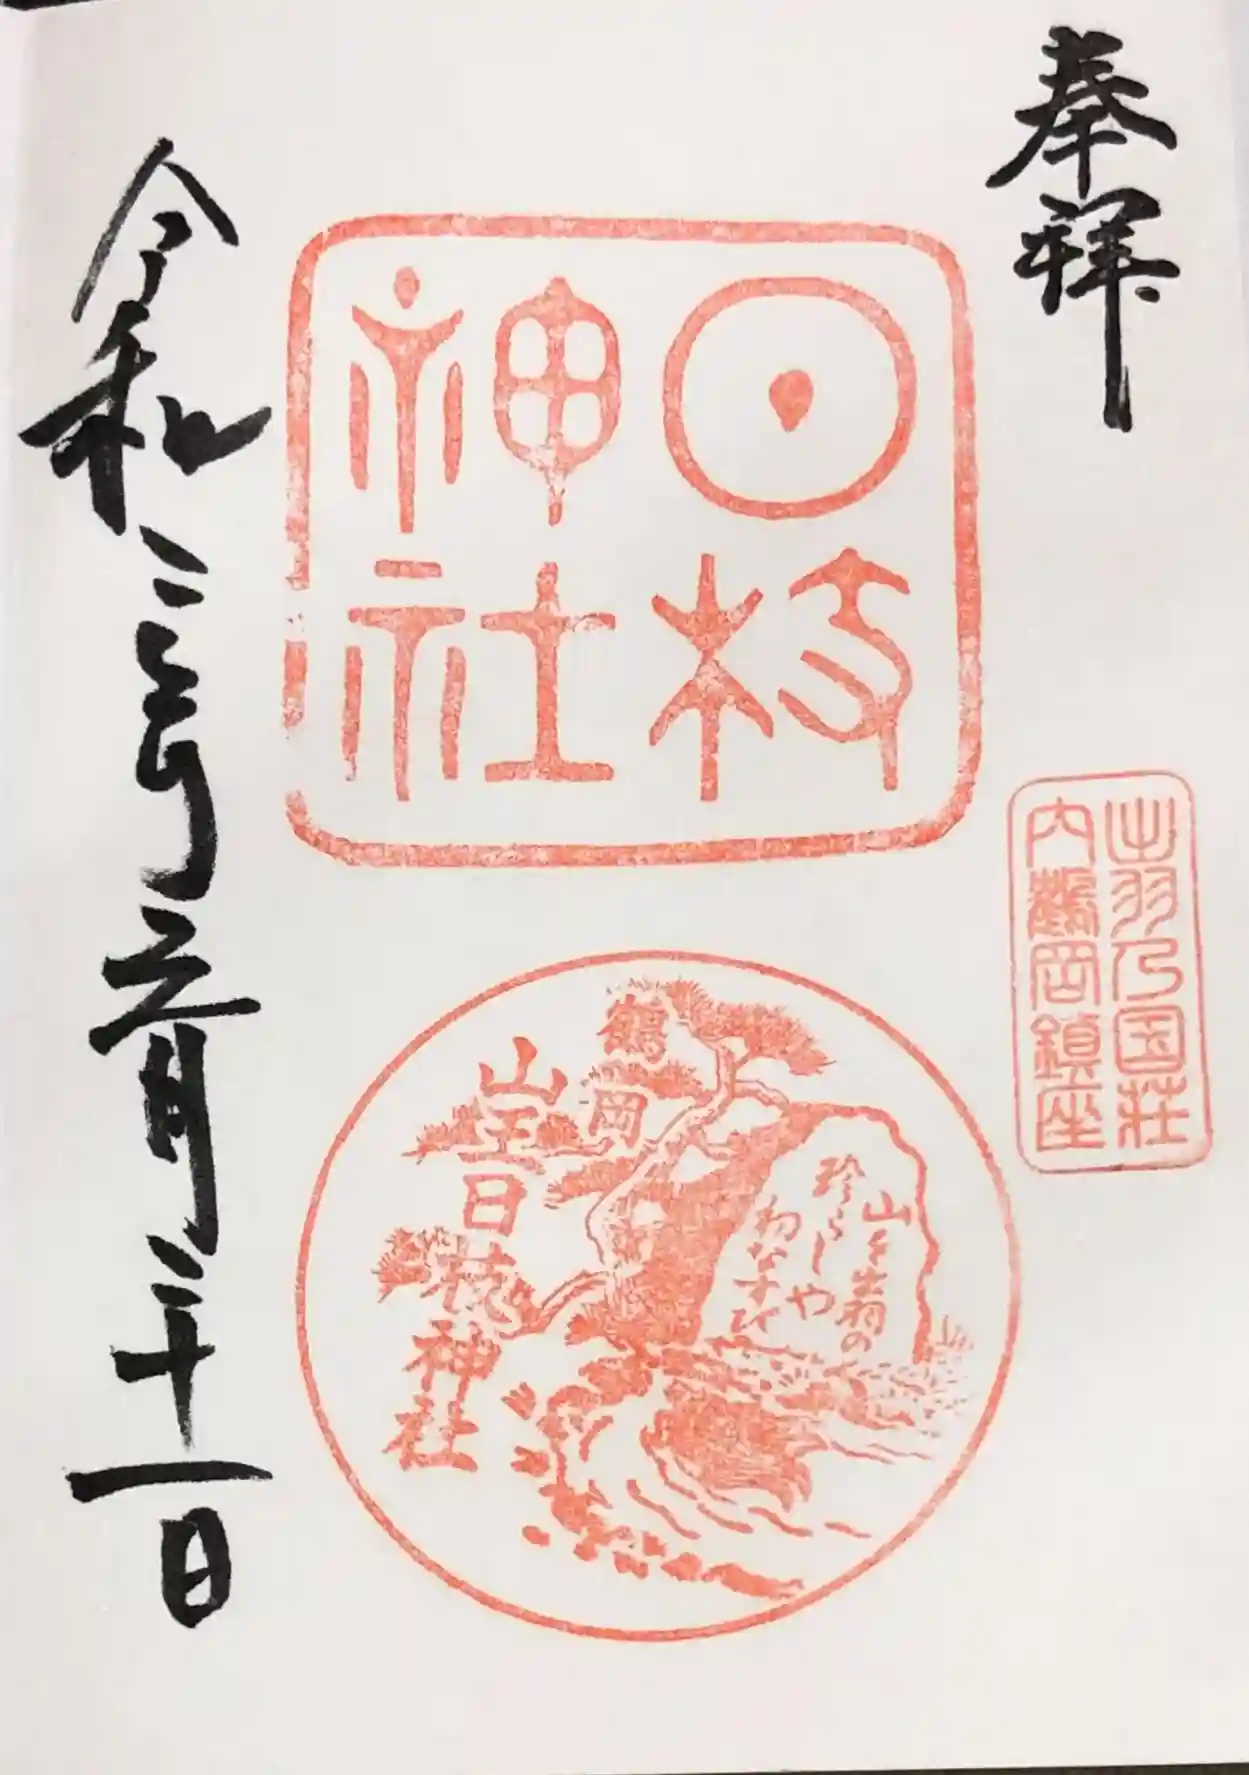 奉拝
日枝
神社
出羽乃国荘
内鶴岡鎮座
鶴岡
山王日枝神社
珍らしや
山を出羽の
初なすび
令和二年 月二十一日